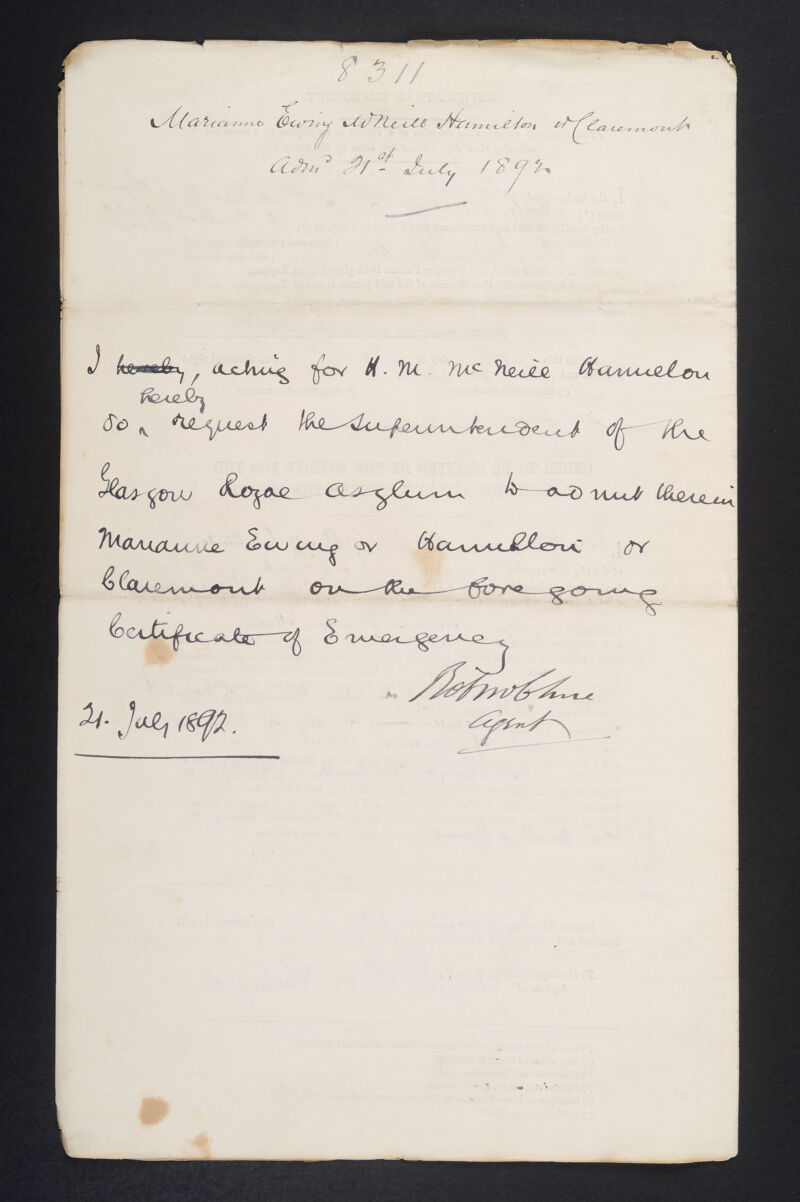 8311
Marianne Ewing McNeill Hamilton or Claremont
Admd 21st July 1892
I hereby, acting for H. M. McNeill Hamilton
hereby
do request the Superintendent of the
Glasgow Royal Asylum to admit therein
Marianne Ewing or Hamilton or
Claremont on the foregoing
Certificate of Emergency
Agent
21. July 1892.